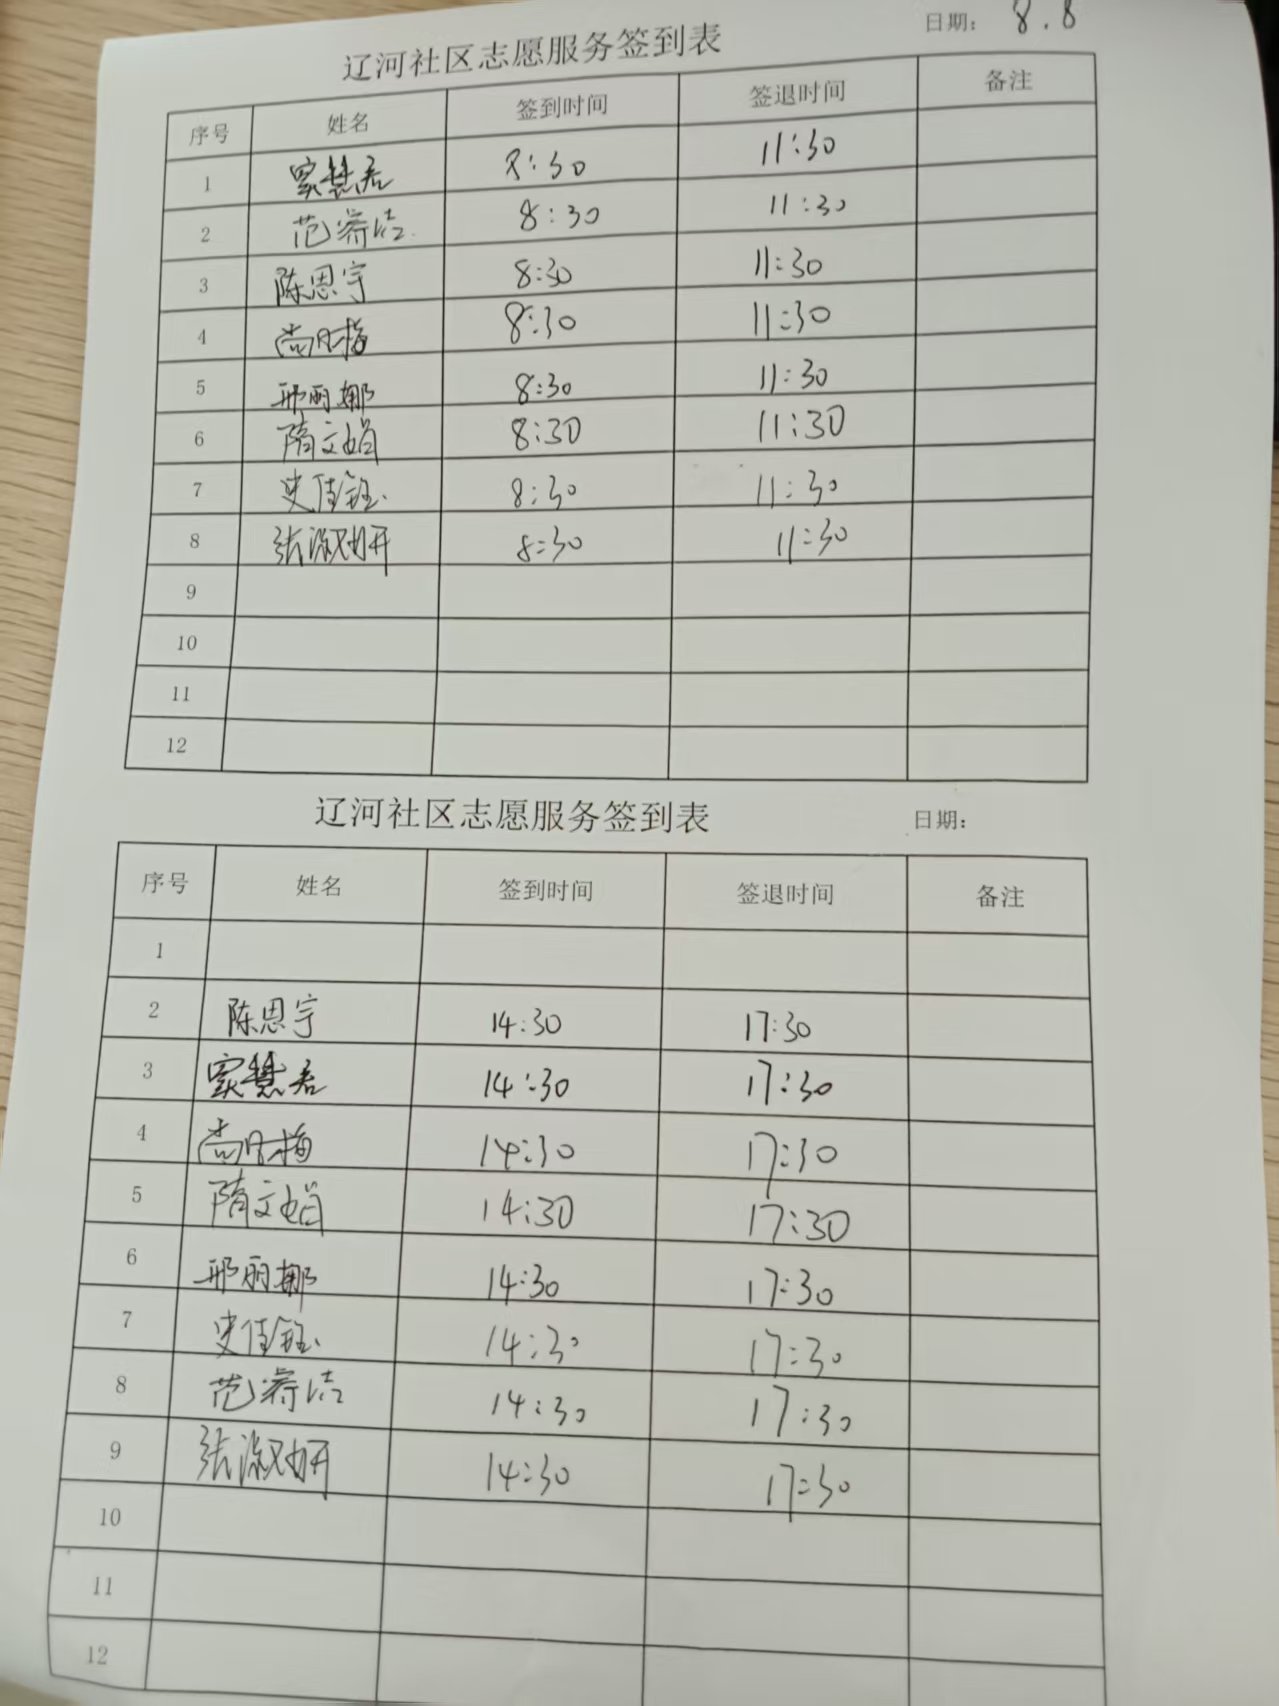 辽河社区志愿服务签到表 日期: 8.8
序号 姓名 签到时间 签退时间 备注
1 窦慧君 8:30 11:30
2 范睿洁 8:30 11:30
3 陈思宇 8:30 11:30
4 尚 梅 8:30 11:30
5 邢丽娜 8:30 11:30
6 隋文娟 8:30 11:30
7 史佳钰 8:30 11:30
8 张淑妍 8:30 11:30
9
10
11
12
辽河社区志愿服务签到表 日期:
序号 姓名 签到时间 签退时间 备注
1
2 陈思宇 14:30 17:30
3 窦慧君 14:30 17:30
4 尚 梅 14:30 17:30
5 隋文娟 14:30 17:30
6 邢丽娜 14:30 17:30
7 史佳钰 14:30 17:30
8 范睿洁 14:30 17:30
9 张淑妍 14:30 17:30
10
11
12